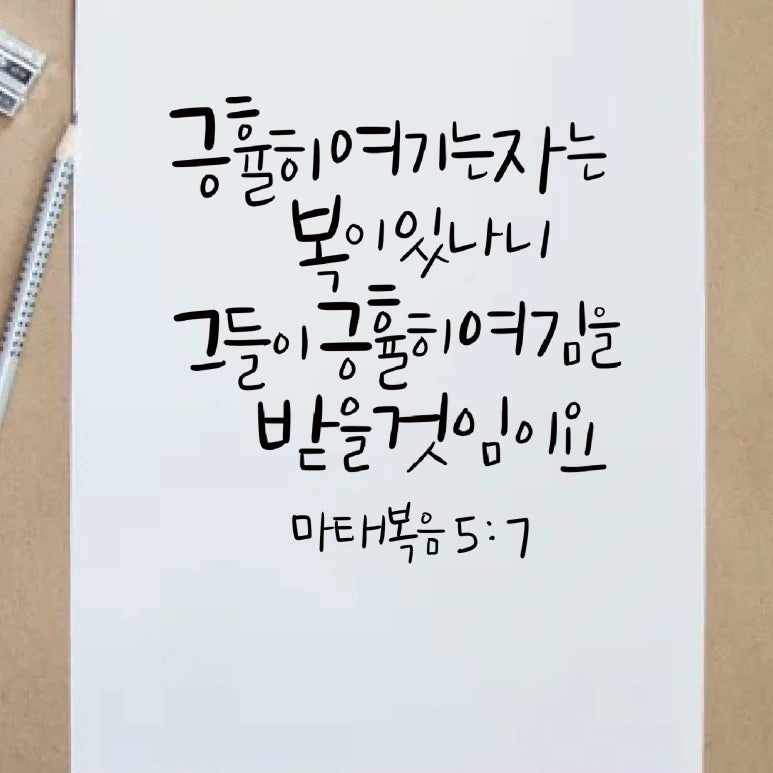 긍휼히 여기는 자는
복이 있나니
그들이 긍휼히 여김을
받을 것임이요
마태복음 5:7